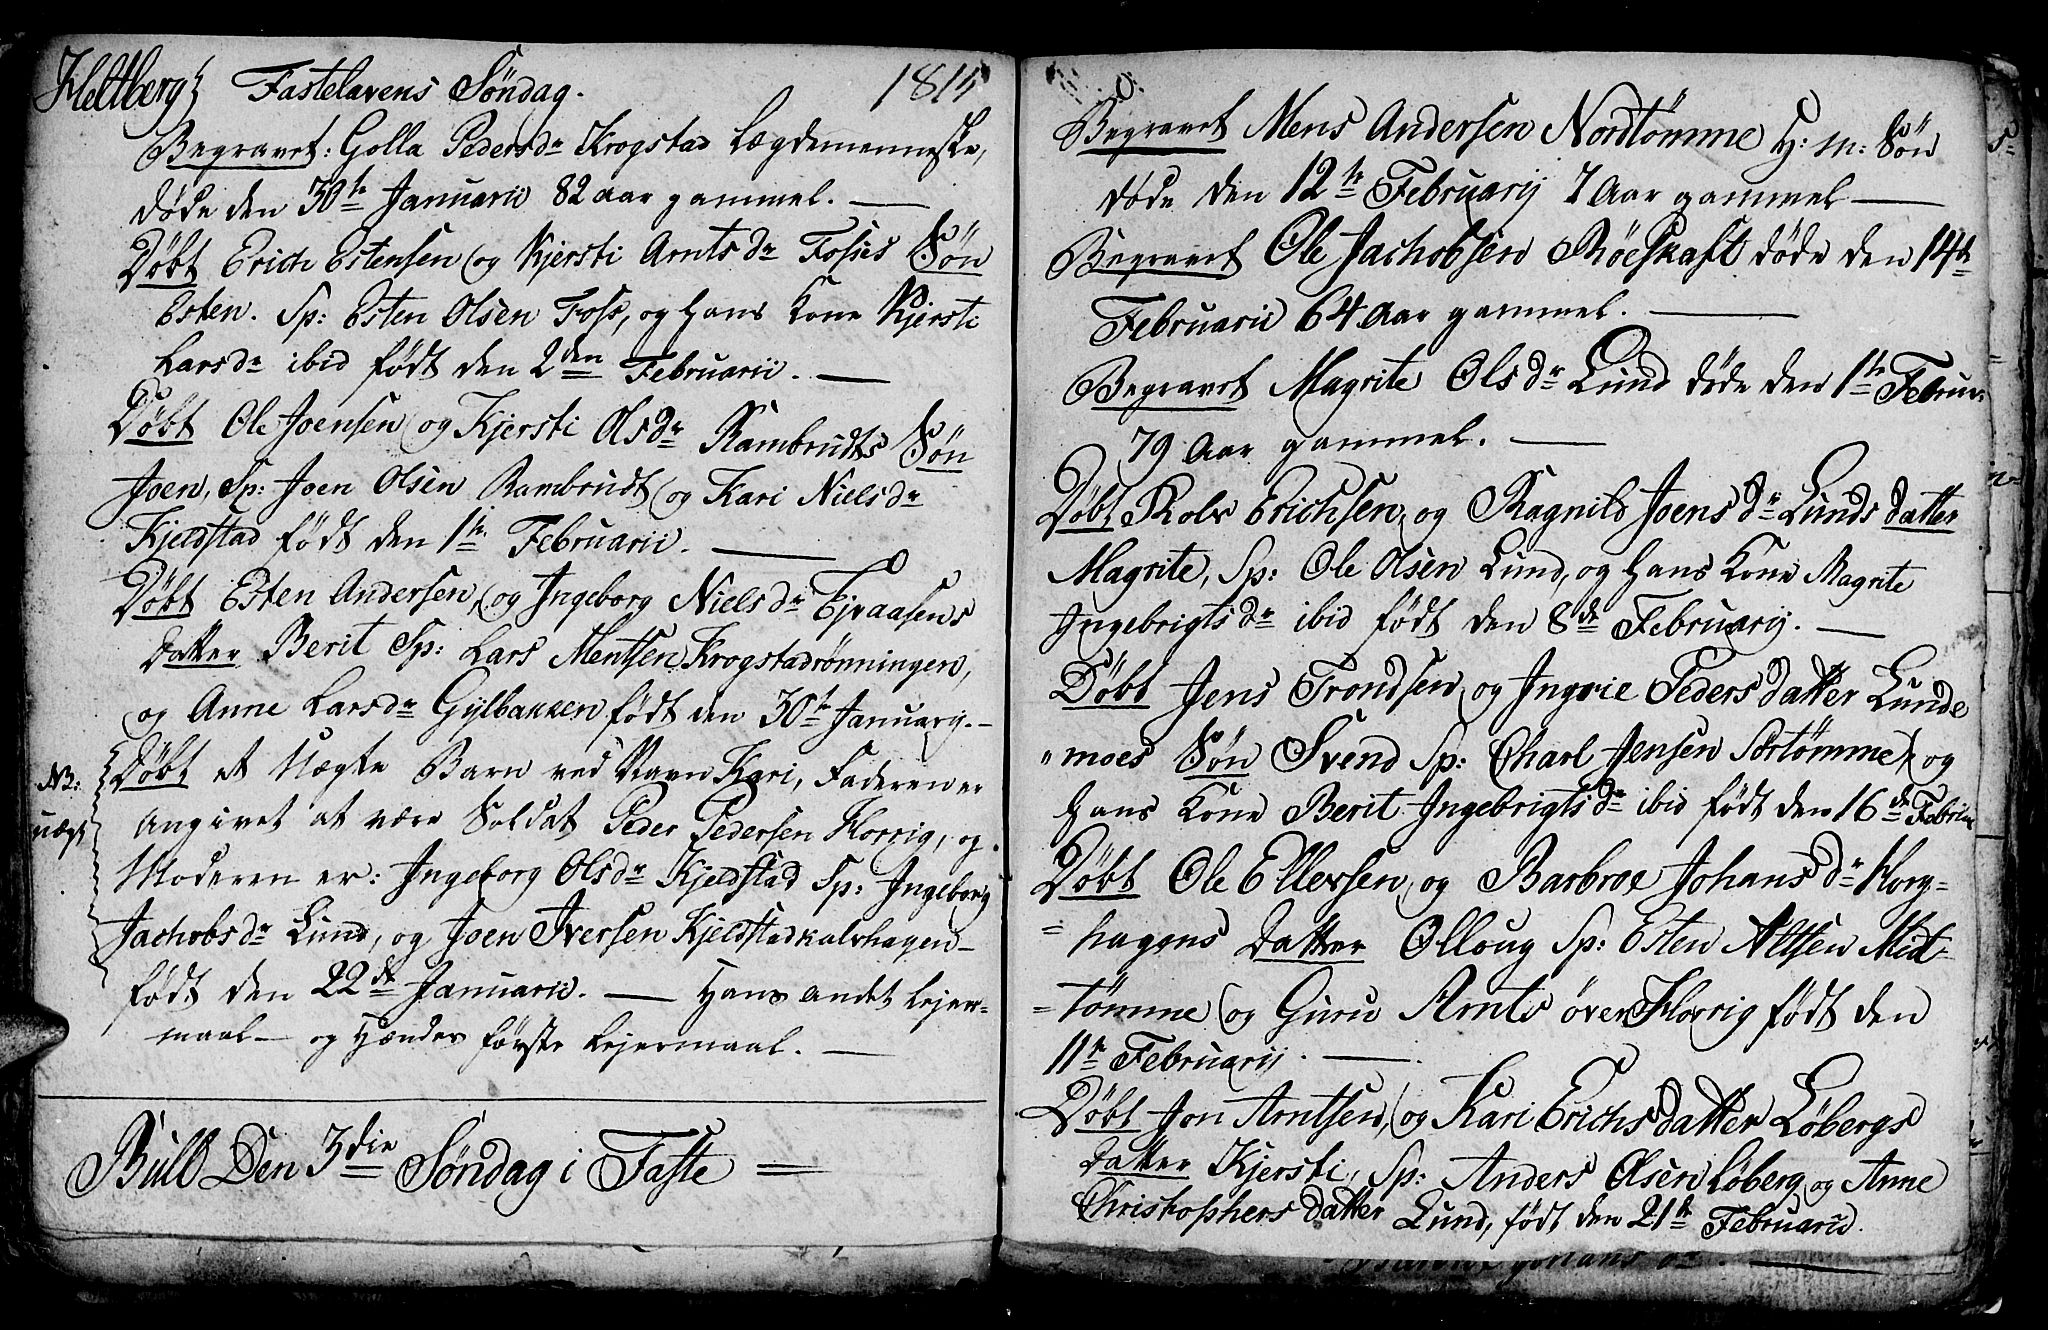 Heltberg Fastelavens Söndag. 1815
Begravet: Golla Pedersdr Krogstad Lægdemenneske,
døde den 30te Januarii 82 aar gammel. —
Döbt Erich Estensen og Kjersti Arntsdr Fosses Sön
Esten. Sp: Esten Olsen Foss, og hans Kone Kjersti
Larsdr ibid födt den 2den Februarii. —
Döbt Ole Joensen og Kjersti Olsdr Rambrudts Sön
Joen, Sp: Joen Olsen Rambrudt og Kari Nielsdr
Kjeldstad födt den 1te Februarii. —
Döbt Esten Andersen, og Ingeborg Nielsdr Ejvaasens
datter Berit Sp: Lars Mentsen Krogstadrönningen,
og Anne Larsdr Gylbakken födt den 30te Januarij. —
NB: Döbt et Uægte Barn ved Navn Kari, Faderen er
uægt angivet at være Soldat Peder Pedersen Horrig, og
Moderen er: Ingeborg Olsdr Kjeldstad Sp: Ingeborg
Jachobsdr Lund, og Joen Iversen Kjeldstadkalvhagen —
födt den 22de Januarii. — Hans andet Lejer-
maal — og Hendes förste Lejermaal. —
Buld Den 3die Söndag i Faste =
Begravet Mens Andersen Nordtömme H: m: Sön
döde den 12te Februarij 7 Aar gammel —
Begravet Ole Jachobsen Röeskaft döde den 14de
Februarii 64 Aar gammel. —
Begravet Magrite Olsdr Lund döde den 1te Februar:
79 Aar gammel. —
Döbt Rolv Erichsen, og Ragnild Joensdr Lunds datter
Magrite, Sp: Ole Olsen Lund, og hans Kone Magrite
Ingebrigtsdr ibid födt den 8de Februarij. —
Döbt Jens Trondsen, og Ingrie Pedersdatter Lunde
" moes Sön Svend Sp: Charl Jensen Sortömme, og
hans Kone Berit Ingebrigtsdr ibid födt den 16de
Döbt Ole Ellevsen, og Barbroe Johansdr Horg-
= hagens datter Olloug Sp: Esten Altsen Mid-
= tömme og Guru Arnts över Horrig födt den
11te Februarij. —
Döbt Jon Arntsen, og Kari Erichsdatter Löbergs
datter Kjersti, Sp: Anders Olsen Löberg, og Anne
Christophersdatter Lund, födt den 21de Februarii.